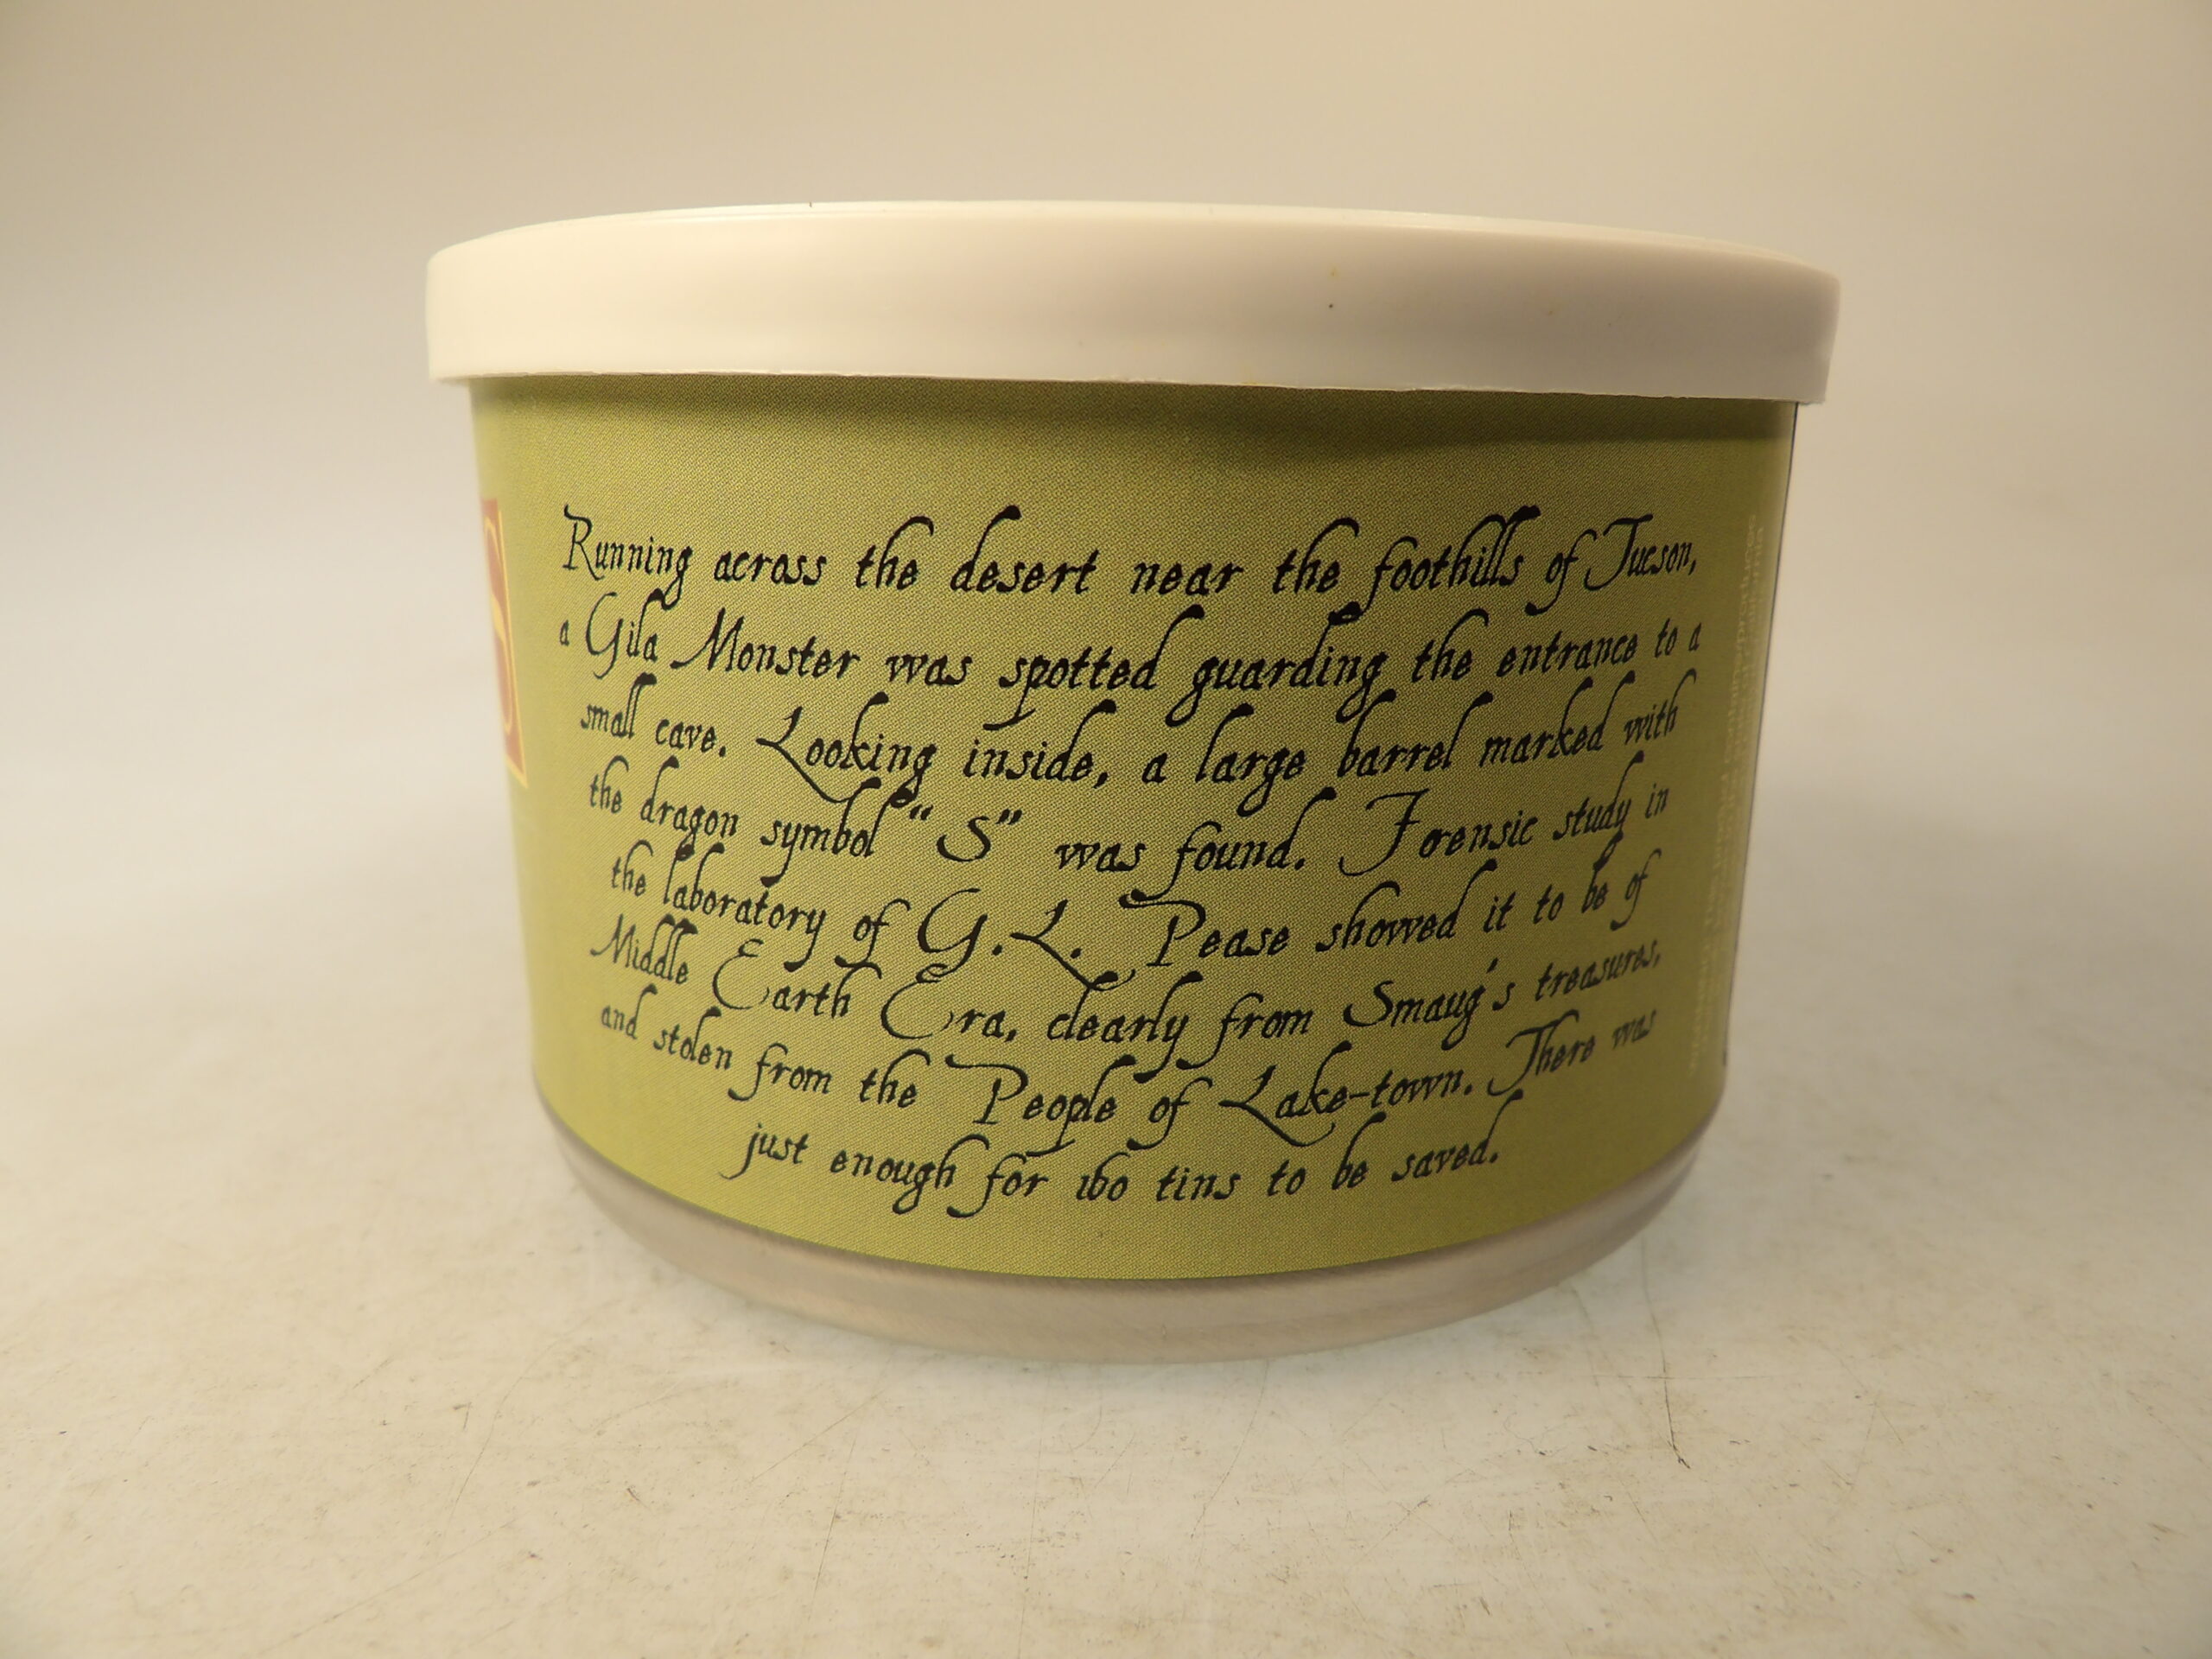 Running across the desert near the foothills of Tucson,
a Gila Monster was spotted guarding the entrance to a
small cave. Looking inside, a large barrel marked with
the dragon symbol "S" was found. Forensic study in
the laboratory of G.L. Pease showed it to be of
Middle Earth Era, clearly from Smaug's treasures,
and stolen from the People of Lake-town. There was
just enough for 160 tins to be saved.
S